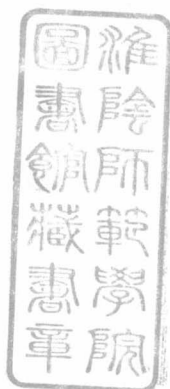 淮陰師範學院
圖書館藏書章